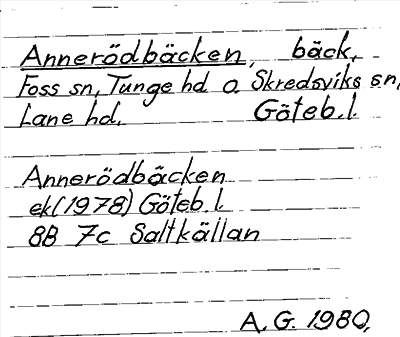 Annerödbäcken, bäck,
Foss sn, Tunge hd o. Skredsviks sn,
Lane hd. Göteb. l.
Annerödbäcken
ek (1978) Göteb. l.
8B 7c Saltkällan
A. G. 1980,